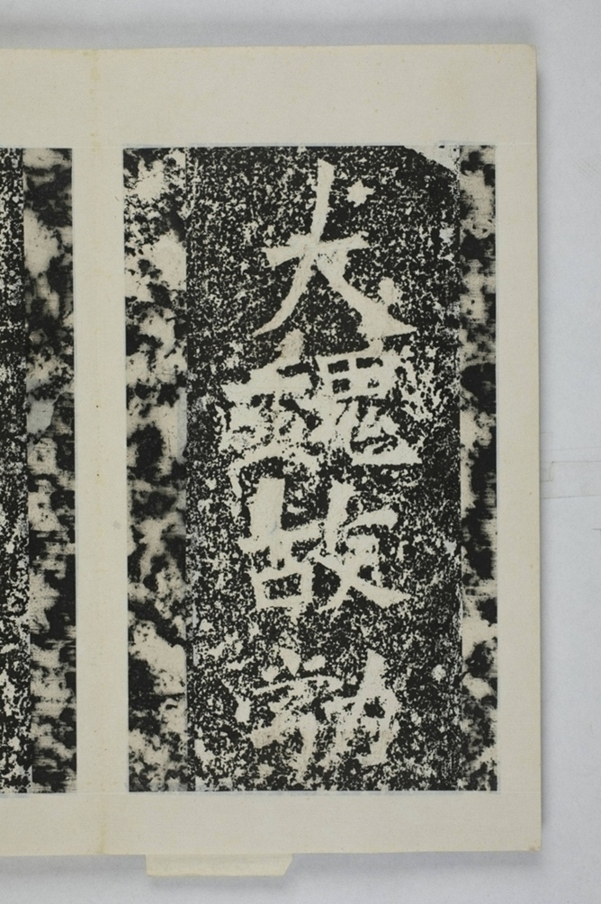 大魏故勃